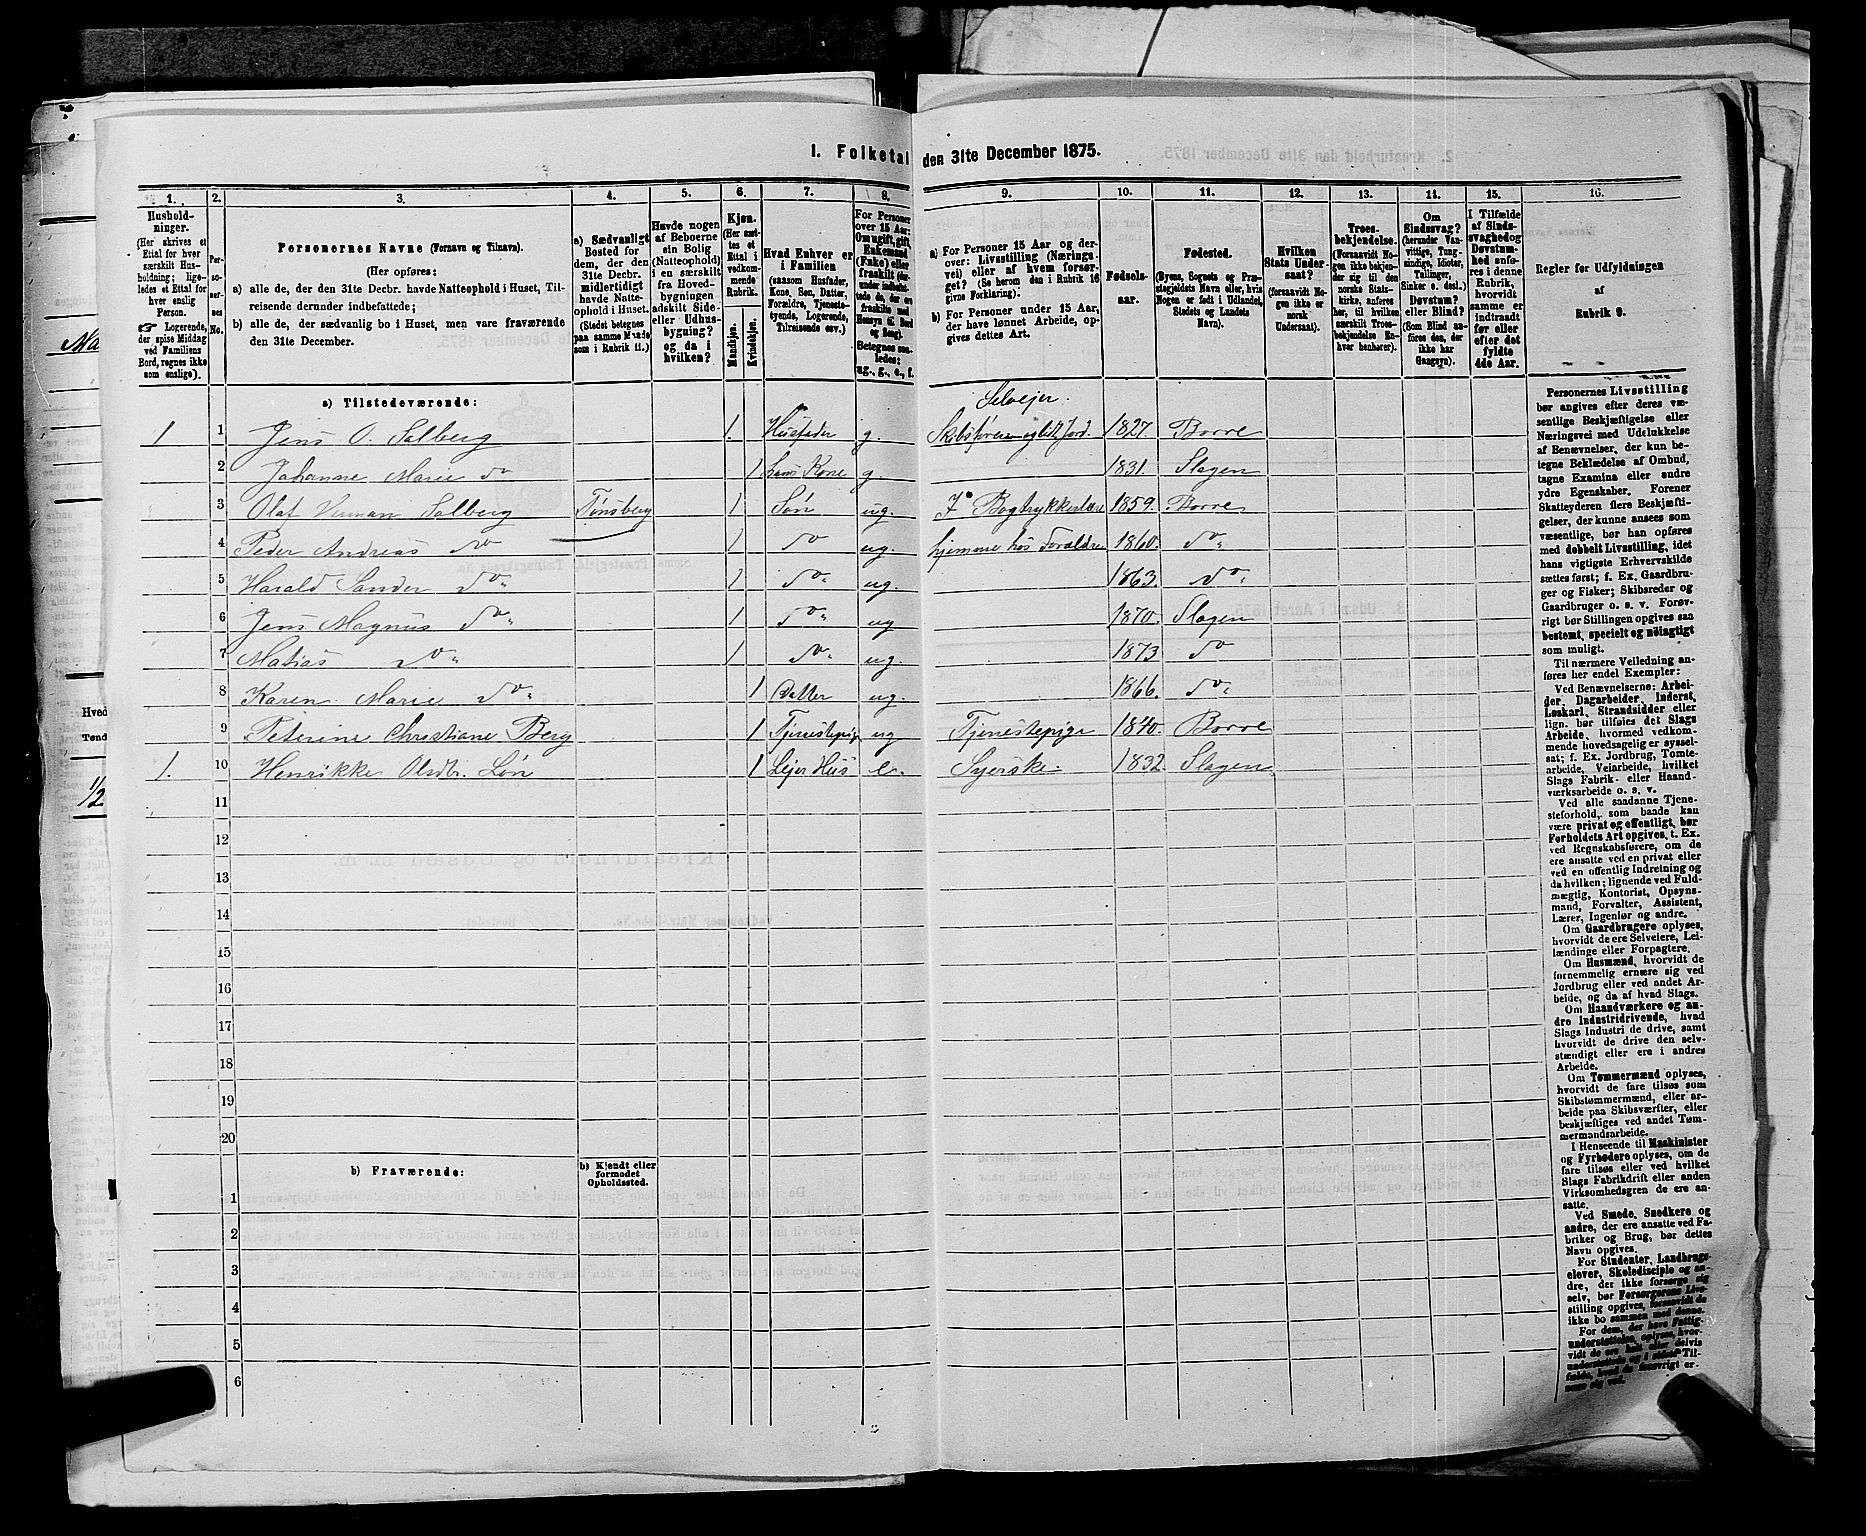 1. Folketal den 31te December 1875.
1. 2. 3. 4. 5. 6. 7. 8. 9. 10. 11. 12. 13. 14. 15. 16.
Hushold-
ninger.
(Her skrives et
Ettal for hver
særskilt Hus-
holdning; lige-
ledes et Ettal for
hver enslig
Person.
☞ Logerende,
der spise Middag
ved Familiens
Bord, regnes ikke
som enslige).
Per-
so-
ner-
nes
No.
Personernes Navne (Fornavn og Tilnavn).
(Her opføres:
a) alle de, der den 31te Decbr. havde Natteophold i Huset, Til-
reisende derunder indbefattede;
b) alle de, der sædvanlig bo i Huset, men vare fraværende
den 31te December.
a) Sædvanligt
Bosted for
dem, der den
31te Decbr.
midlertidigt
havde Natte-
ophold i Huset.
(Stedet betegnes
paa samme Maade
som i Rubrik 11.)
Havde nogen
af Beboerne
sin Bolig
(Natteophold)
i en særskilt
fra Hoved-
bygningen
adskilt Side-
eller Udhus-
bygning?
og da i
hvilken?
Kjøn.
(Her sæt-
tes et
Ettal i
vedkom-
mende
Rubrik.
Mandkjøn.
Kvindekjøn.
Hvad Enhver er
i Familien
(saasom Husfader,
Kone, Søn, Datter,
Forældre, Tjeneste-
tyende, Logerende,
Tilreisende osv.)
For Personer
over 15 Aar:
Om ugift, gift,
Enkemand
(Enke) eller
fraskilt (der-
under indbefat-
tede de, der ere
fraskilte med
Hensyn til Bord
og Seng).
Betegnes saa-
ledes:
ug., g., e., f.
a) For Personer 15 Aar og der-
over: Livsstilling (Nærings-
vei) eller af hvem forsør-
get? (Se herom den i Rubrik 16
givne Forklaring).
b) For Personer under 15 Aar,
der have lønnet Arbeide, op-
gives dettes Art.
Fødsels-
aar.
Fødested.
(Byens, Sognets og Præ-
stegjeldets Navn eller, hvis
Nogen er født i Udlandet,
Stedets og Landets
Navn).
Hvilken
Stats Under-
saat?
(foraavidt No-
gen ikke er
norsk
Undersaat).
Troes-
bekjendelse.
(Forsaavidt No-
gen ikke bekjen-
der sig til den
norske Stats-
kirke, anføres
her, til hvilken
særskilt Troes-
bekjendelse En-
hver henhører).
Om
Sindssvag?
(herunder Van-
vittige, Tung-
sindige, Idioter,
Tullinger,
Sinker o. desl.)
Døvstum?
eller Blind?
(Som Blind an-
føres den, der
ikke har
Gangsyn).
I Tilfælde
af Sinds-
svaghed og
Døvstum-
hed anfø-
res i denne
Rubrik,
hvorvidt
samme er
indtraadt
før eller
efter det
fyldte
4de Aar.
Regler for Udfyldningen
af
Rubrik 9.
a) Tilstedeværende:
Selvejer.
1 1 Jens O. Solberg 1. Husfader g. Skibsfører og lidt Jord. 1827. Borre
2 Johanne Marie do 1 hans Kone g. 1831. Slagen
3 Olaf Herman Solberg Tønsberg 1 Søn ug. I Bogtrykkerlære 1859. Borre
4 Peder Andreas do 1 do ug. hjemme hos Forældre 1860. do
5 Harald Sander do 1 do ug. 1863. do
6 Jens Magnus do 1 do ug 1870. Slagen
7 Matias do 1 do ug. 1873 do
8 Karen Marie do 1 Datter ug. 1866. do
9 Peterine Christiane Berg 1 Tjenestepige ug Tjenestepige 1840. Borre
1. 10 Henrikke Olsdtr. Løn 1 Lejer Hus e. Syerske. 1832. Slagen
11
12
13
14
15
16
17
18
19
20
b) Fraværende:
b) Kjendt eller
formodet
Opholdssted.
1
2
3
4
5
6
Personernes Livsstilling
bør angives efter deres væ-
sentlige Beskjæftigelse eller
Næringsvei med Udelukkelse
af Benævnelser, der kun be-
tegne Beklædelse af Ombud,
tagne Examina eller andre
ydre Egenskaber. Forener
Skatteyderen flere Beskjæfti-
gelser, der kunne ansees som
væsentlige, bør han opføres
med dobbelt Livsstilling, idet
hans vigtigste Erhvervskilde
sættes først; f. Ex. Gaardbru-
ger og Fisker; Skibsreder og
Gaardbruger o. s. v. Forøv-
rigt bør Stillingen opgives saa
bestemt, specielt og nøiagtigt
som muligt.
Til nærmere Veiledning an-
føres her endel Exempler:
Ved Benævnelserne: Arbei-
der, Dagarbeider, Inderst,
Løskarl, Strandsidder eller
lign. bør tilføies det Slags
Arbeide, hvormed vedkom-
mende hovedsagelig er syssel-
sat; f. Ex. Jordbrug, Tomte-
arbeide, Veiarbeide, hvilket
Slags Fabrik- eller Haand-
værksarbeide o. s. v.
Ved alle saadanne Tjene-
steforhold, som baade kan
være privat og offentligt, bør
Forholdets Art opgives, t. Ex.
ved Regnskabsførere, om de
ere ansatte ved en privat eller
ved en offentlig Indretning og
da hvilken; lignende ved Fuld-
mægtig, Kontorist, Opsyns-
mand, Forvalter, Assistent,
Lærer, Ingeniør og andre.
Om Gaardbrugere oplyses,
hvorvidt de ere Selveiere, Lei-
lændinge eller Forpagtere.
Om Husmænd, hvorvidt de
fornemmelig ernære sig ved
Jordbrug eller ved andet Ar-
beide, og da af hvad Slags.
Om Haandværkere og an-
dre Industridrivende, hvad
Slags Industri de drive, samt
hvorvidt de drive den selv-
stændigt eller ere i andres
Arbeide.
Om Tømmermænd oplyses,
hvorvidt de fare tilsøs som
Skibstømmermænd, eller ar-
beide paa Skibsværfter, eller
beskjæftiges ved andet Tøm-
mermandsarbeide.
I Henseende til Maskinister
og Fyrbødere oplyses, om de
fare tilsøs eller ved hvilket
Slags Fabrikdrift eller anden
Virksomhedsgren de ere an-
satte.
Ved Smede, Snedkere og
andre, der ere ansatte ved Fa-
briker og Brug, bør dettes
Navn opgives.
For Studenter, Landbrugs-
elever, Skoledisciple og an-
dre, der ikke forsørge sig
selv, bør Forsørgerens Livs-
stilling opgives, forsaavidt de
ikke bo sammen med denne.
For dem, der have Fattig-
understøttelse, oplyses, hvor-
vidt de ere helt eller delvis
understøttede og i sidste Til-
fælde, hvad de forøvrigt er-
nære sig ved.